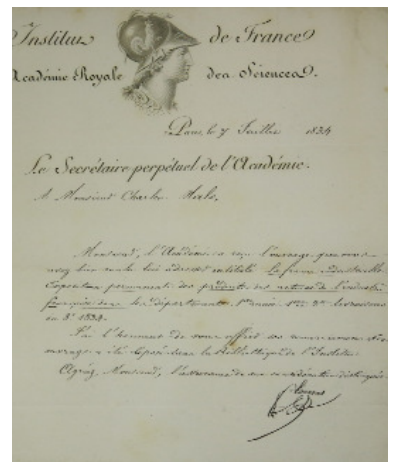 Institut de France
Académie Royale des Sciences.
Paris, le 7 Juillet 1834
Le Secrétaire perpétuel de l'Académie.
A Monsieur Charles
Monsieur, l'Académie a reçu l'ouvrage que vous
avez bien voulu lui adresser intitulé La france industrielle
Exposition permanente des produits des
française dans les départements 1ère année
in 8° 1834.
J'ai l'honneur de vous offrir ses
ouvrage a été déposé dans la Bibliothèque de l'Institut
Agréez, Monsieur, l'assurance de ma considération distinguée